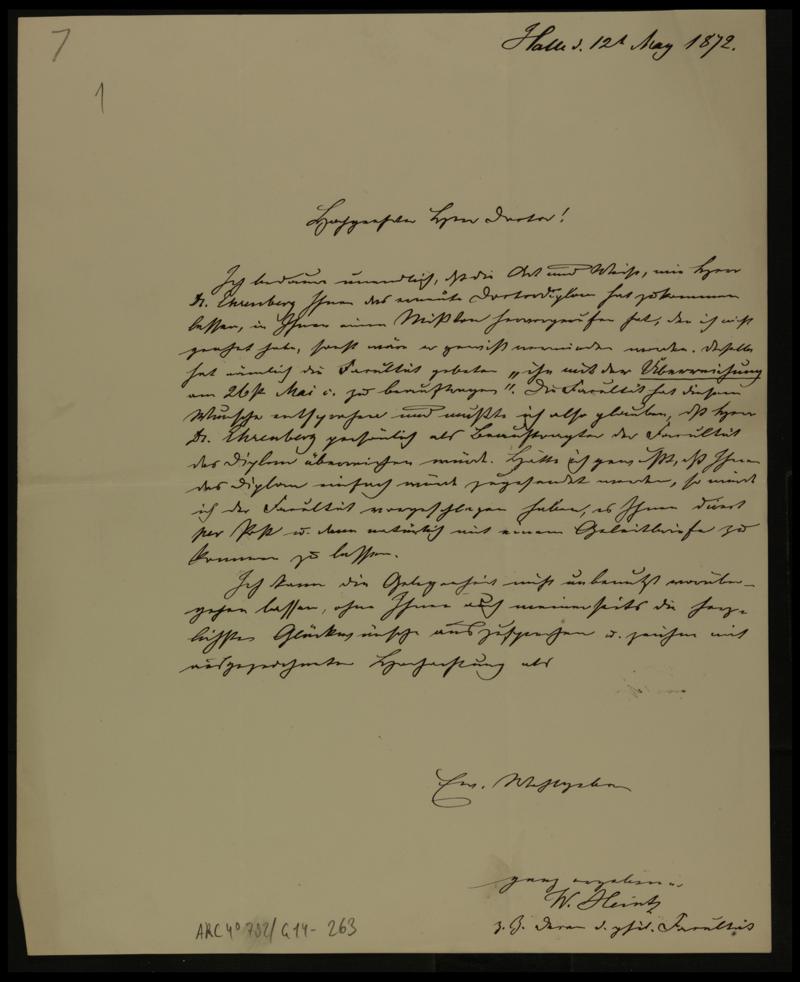 7
1
Halle d. 12t May 1872.
Hochgeehrter Herr Doctor!
Ich bedaure unendlich, daß die Art und Weise, wie Herr
Dr. Ehrenberg Ihnen das erneute Doctordiplom hat zukommen
lassen, in Ihnen einen Mißton hervorgerufen hat, den ich nicht
geahnt habe, sonst wäre er gewiß vermieden worden. Derselbe
hat nämlich die Facultät gebeten „ihn mit der Überreichung
am 26st Mai c. zu beauftragen“. Die Facultät hat diesem
Wunsche entsprochen und mußte ich also glauben, daß Herr
Dr. Ehrenberg persönlich als Beauftragter der Facultät
das Diplom überreichen würde. Hätte ich gewußt, daß Ihnen
das Diplom einfach würde zugesendet werden, so würde
ich der Facultät vorgeschlagen haben, es Ihnen direct
per Post u. dann natürlich mit einem Geleitbriefe zu
kommen zu lassen.
Ich kann die Gelegenheit nicht unbenutzt vorüber-
gehen lassen, ohne Ihnen auch meinerseits die herz-
lichsten Glückwünsche auszusprechen u. zeichne mit
ausgezeichneter Hochachtung als
Ew. Wohlgeboren
ganz ergebener
W. Heintz
z. Z. Decan d. phil. Facultät
ARC 4° 792/G14-263